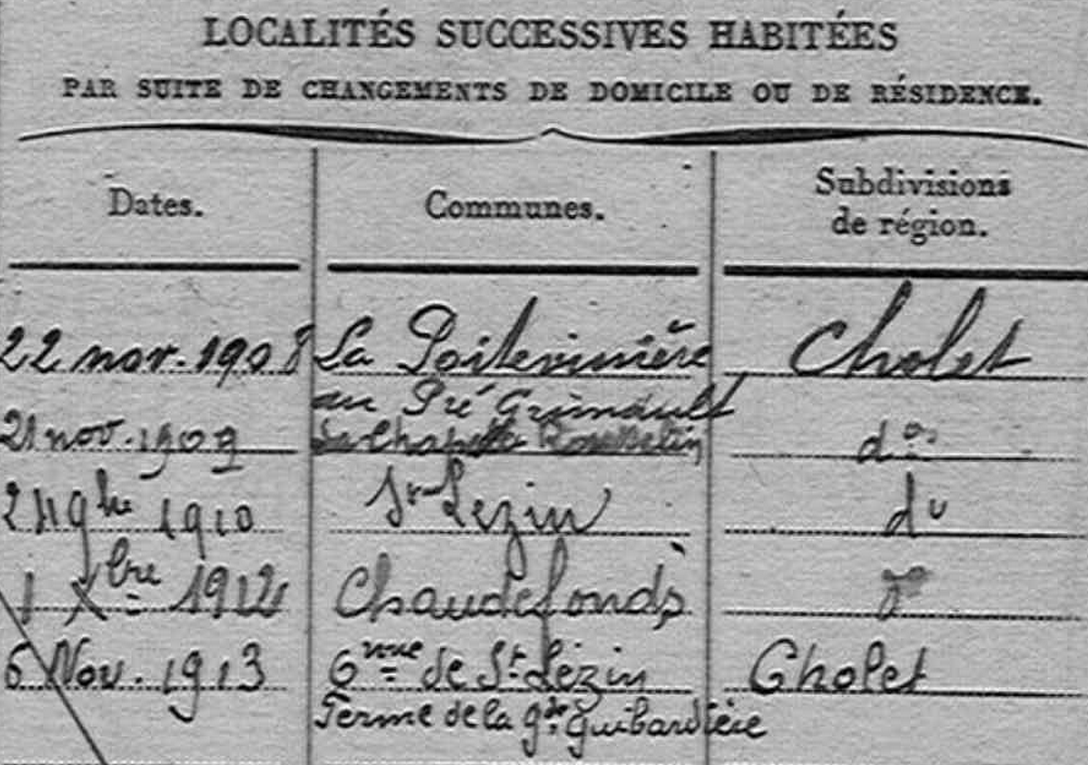 LOCALITÉS SUCCESSIVES HABITÉES
PAR SUITE DE CHANGEMENTS DE DOMICILE OU DE RÉSIDENCE.
Dates. Communes. Subdivisions
de région.
22 nov. 1908 La Poitevinière Cholet
au Pré Grimault
21 nov. 1909 La Chapelle Rousselin do
2 1910 St Lezin do
1 Xbre 1912 Chaudefonds do
6 Nov. 1913 Cnne de St Lézin Cholet
Ferme de la gde Guibardière